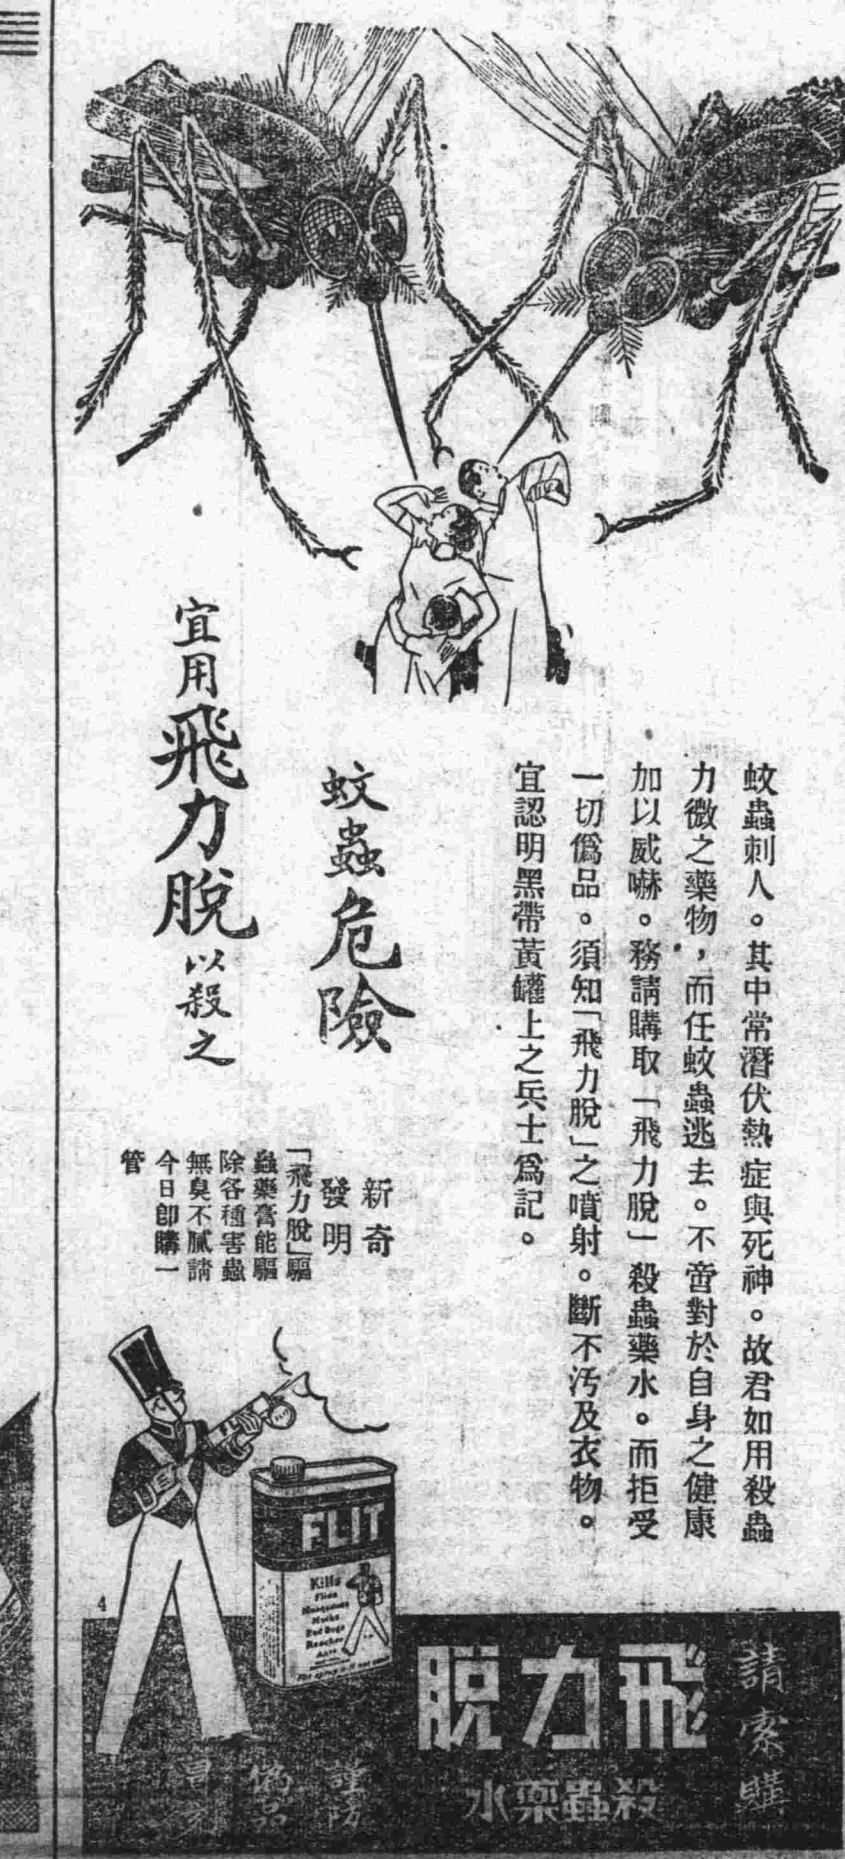 蚊蟲刺人。其中常潛伏熱症與死神。故君如用殺蟲
力微之藥物，而任蚊蟲逃去。不啻對於自身之健康
加以威嚇。務請購取「飛力脫」殺蟲藥水。而拒受
一切僞品。須知「飛力脫」之噴射。斷不汚及衣物。
宜認明黑帶黃罐上之兵士爲記。
蚊蟲危險
宜用飛力脫以殺之
新奇
發明
「飛力脫」驅
蟲藥膏能驅
除各種害蟲
無臭不膩請
今日卽購一
管
FLIT
Kills
Flies
Mosquitoes
Moths
Bed Bugs
Roaches
Ants
4
請索購
飛力脫
殺蟲藥水
謹防
僞品
冒充